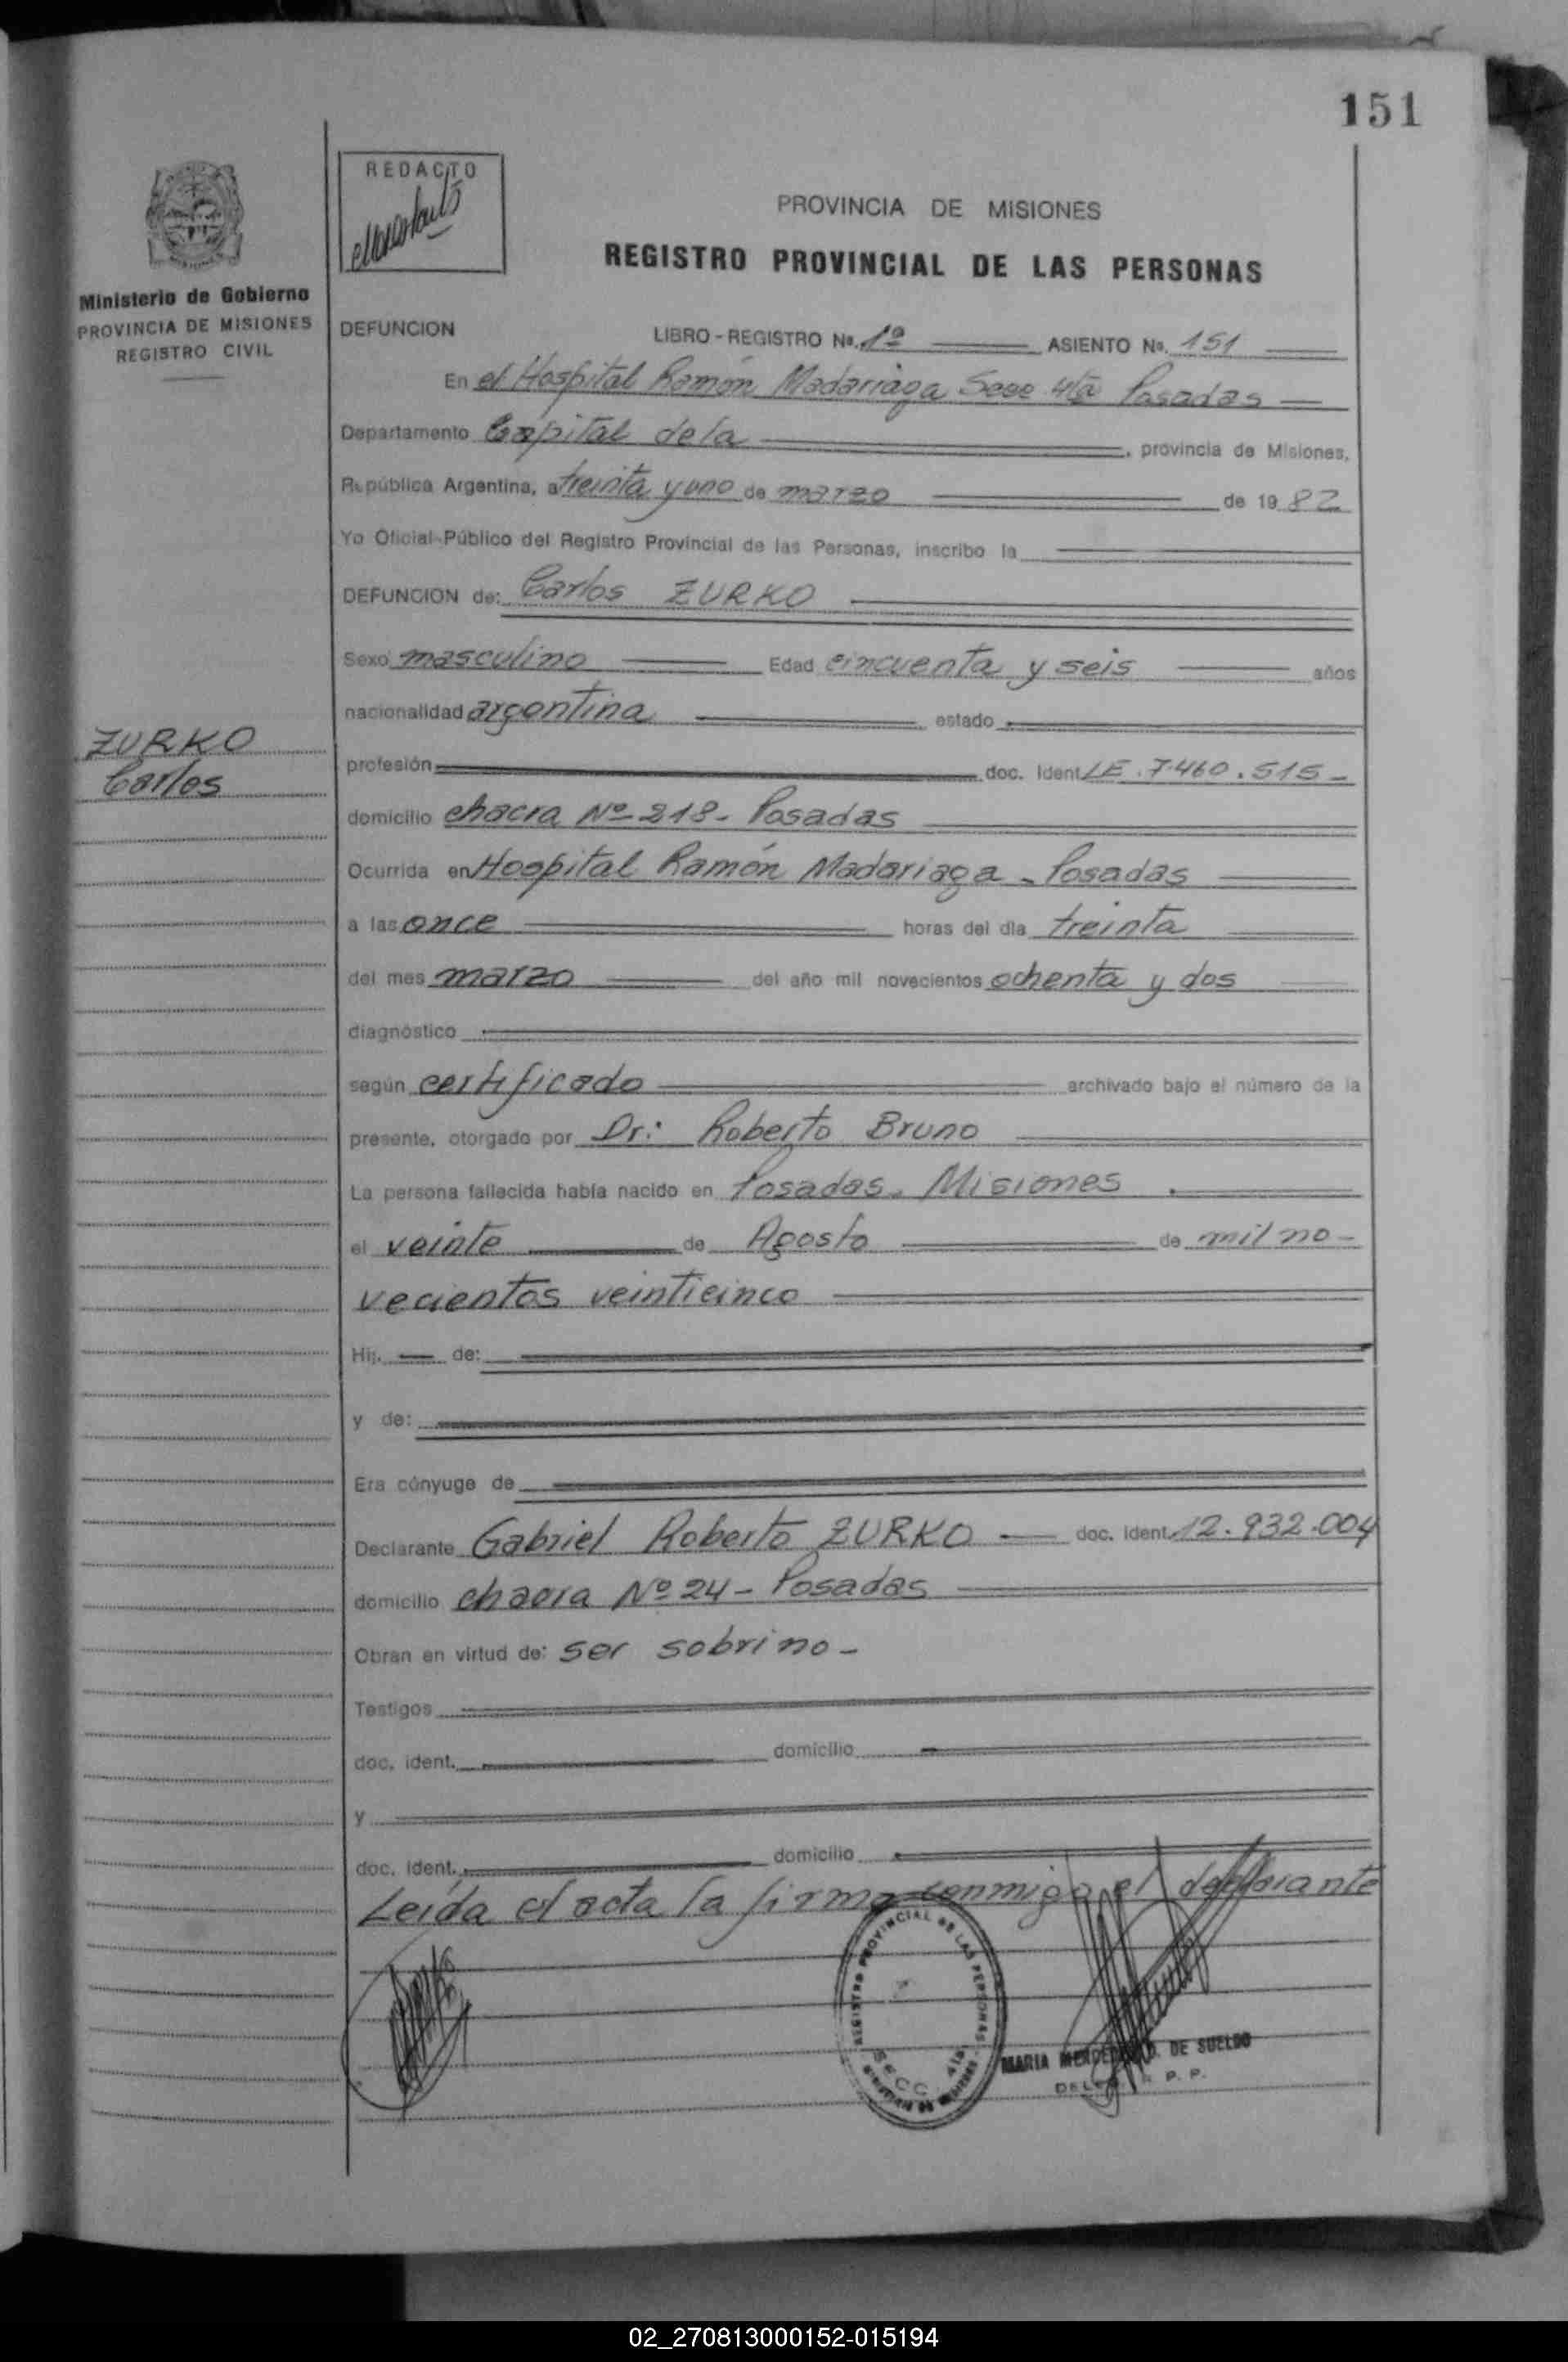 151
REDACTO
PROVINCIA DE MISIONES
REGISTRO PROVINCIAL DE LAS PERSONAS
Ministerio de Gobierno
PROVINCIA DE MISIONES
REGISTRO CIVIL
DEFUNCION LIBRO-REGISTRO No. 1º ASIENTO No. 151
En el Hospital Ramón Madariaga Secc 4ta Posadas
Departamento Capital de la , provincia de Misiones,
República Argentina, a treinta y uno de marzo de 1982
Yo Oficial Público del Registro Provincial de las Personas, inscribo la
DEFUNCION de: Carlos ZURKO
Sexo masculino Edad cincuenta y seis años
nacionalidad argentina estado
ZURKO
Carlos
profesión doc. Ident LE. 7.460.515-
domicilio chacra Nº 218- Posadas
Ocurrida en Hospital Ramón Madariaga - Posadas
a las once horas del dia treinta
del mes marzo del año mil novecientos ochenta y dos
diagnóstico
según certificado archivado bajo el número de la
presente, otorgado por Dr: Roberto Bruno
La persona fallecida había nacido en Posadas. Misiones
el veinte de Agosto de mil no-
vecientos veinticinco
Hij. de:
y de:
Era cónyuge de
Declarante Gabriel Roberto ZURKO doc. Ident. 12.932.004
domicilio chacra Nº 24- Posadas
Obran en virtud de: ser sobrino-
Testigos
doc. ident. domicilio
y
doc. ident. domicilio
Leída el acta la firma conmigo el declarante
REGISTRO PROVINCIAL DE LAS PERSONAS
SECC 4ta
MARIA MERCEDES DE SUELDO
02_270813000152-015194